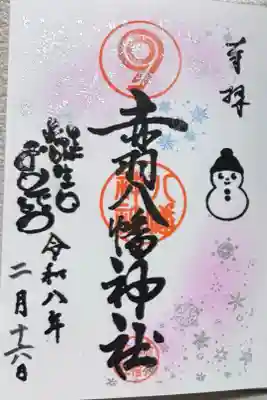 奉拝
赤羽八幡神社
令和八年
二月十六日